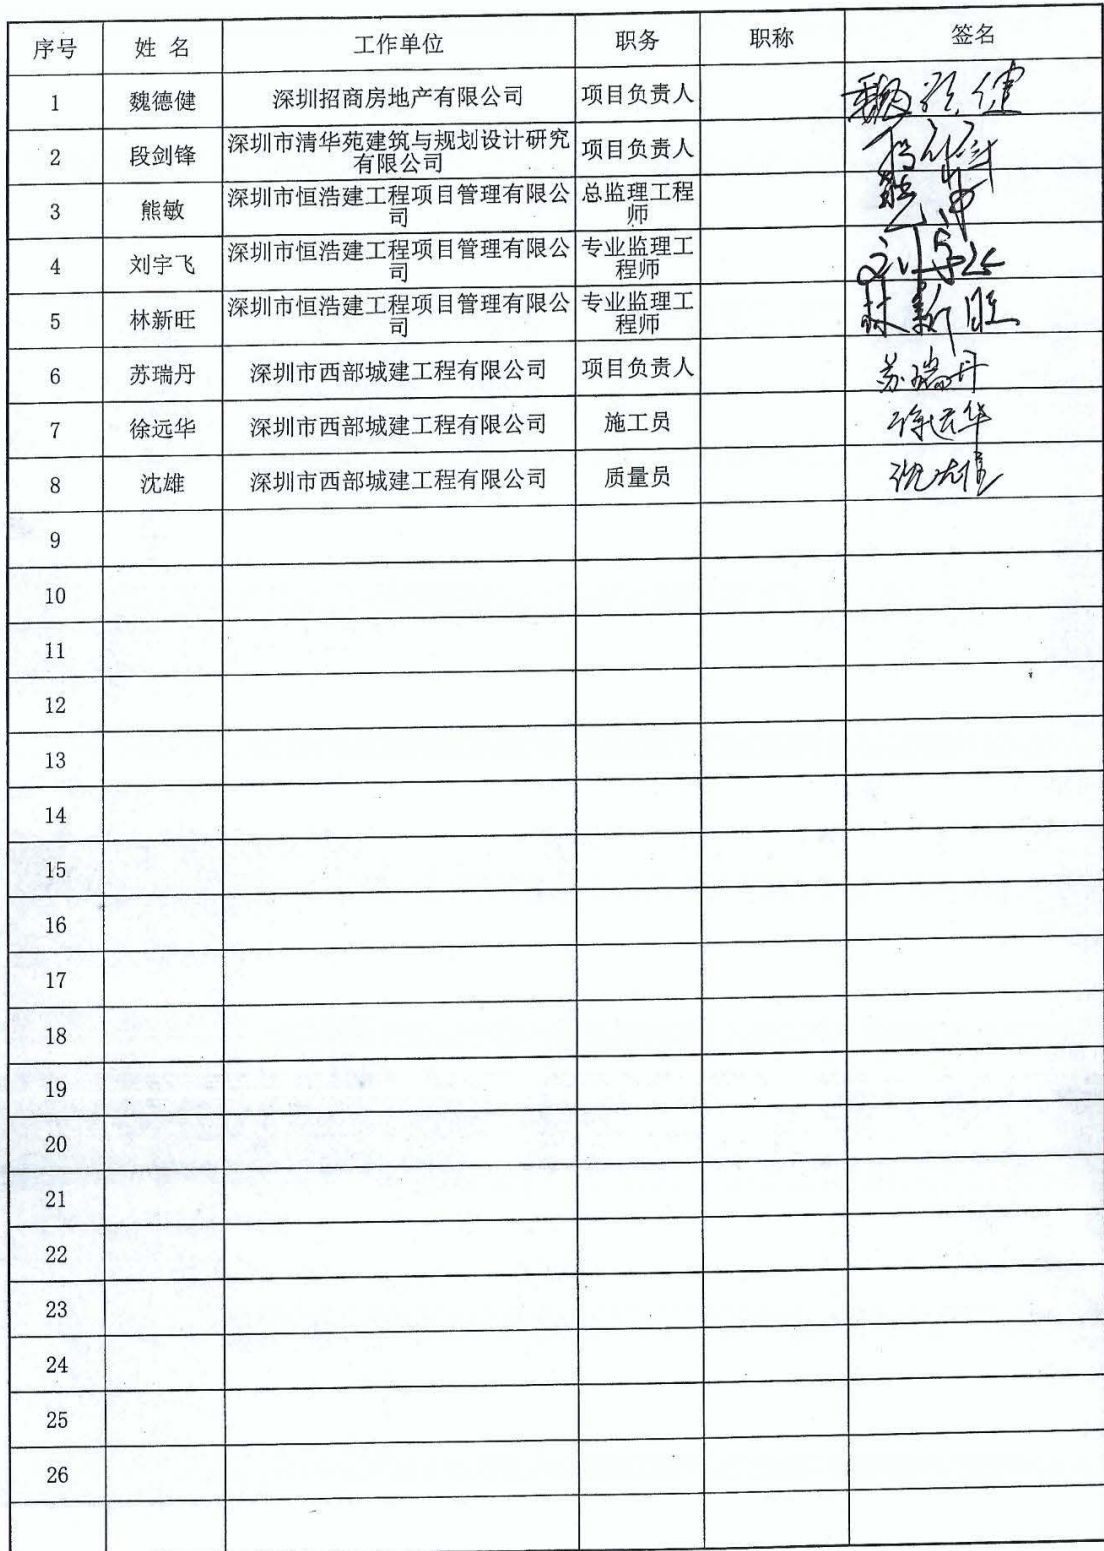 序号 姓 名 工作单位 职务 职称 签名
1 魏德健 深圳招商房地产有限公司 项目负责人 魏德健
2 段剑锋 深圳市清华苑建筑与规划设计研究有限公司 项目负责人
3 熊敏 深圳市恒浩建工程项目管理有限公司 总监理工程师
4 刘宇飞 深圳市恒浩建工程项目管理有限公司 专业监理工程师 刘宇飞
5 林新旺 深圳市恒浩建工程项目管理有限公司 专业监理工程师 林新旺
6 苏瑞丹 深圳市西部城建工程有限公司 项目负责人 苏瑞丹
7 徐远华 深圳市西部城建工程有限公司 施工员 徐远华
8 沈雄 深圳市西部城建工程有限公司 质量员 沈雄
9
10
11
12
13
14
15
16
17
18
19
20
21
22
23
24
25
26